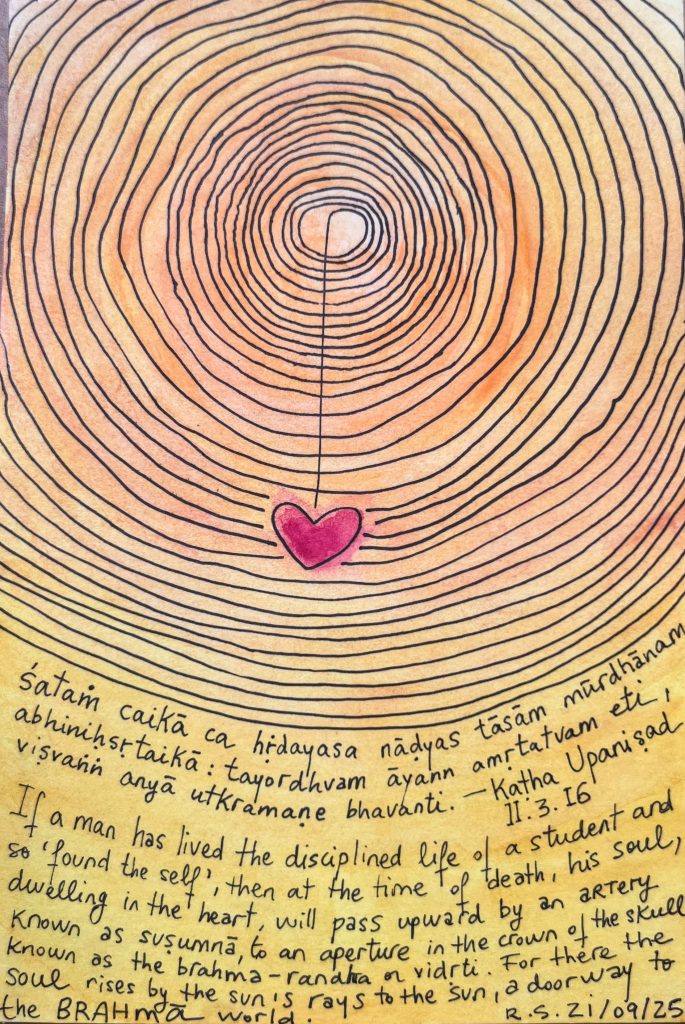 śataṁ caikā ca hṛdayasa nāḍyas tāsām mūrdhānam
abhiniḥsṛtaikā: tayordhvam āyann amṛtatvam eti,
viṣvaṅṅ anyā utkramaṇe bhavanti. – Kaṭha Upaniṣad
II.3.16
If a man has lived the disciplined life of a student and
so 'found the self', then at the time of death, his soul,
dwelling in the heart, will pass upward by an ARTERY
known as suṣumnā, to an aperture in the crown of the skull
known as the brahma-randha or vidrti. For there the
soul rises by the sun's rays to the sun, a doorway to
the BRAHmā world.
R.S. 21/09/25